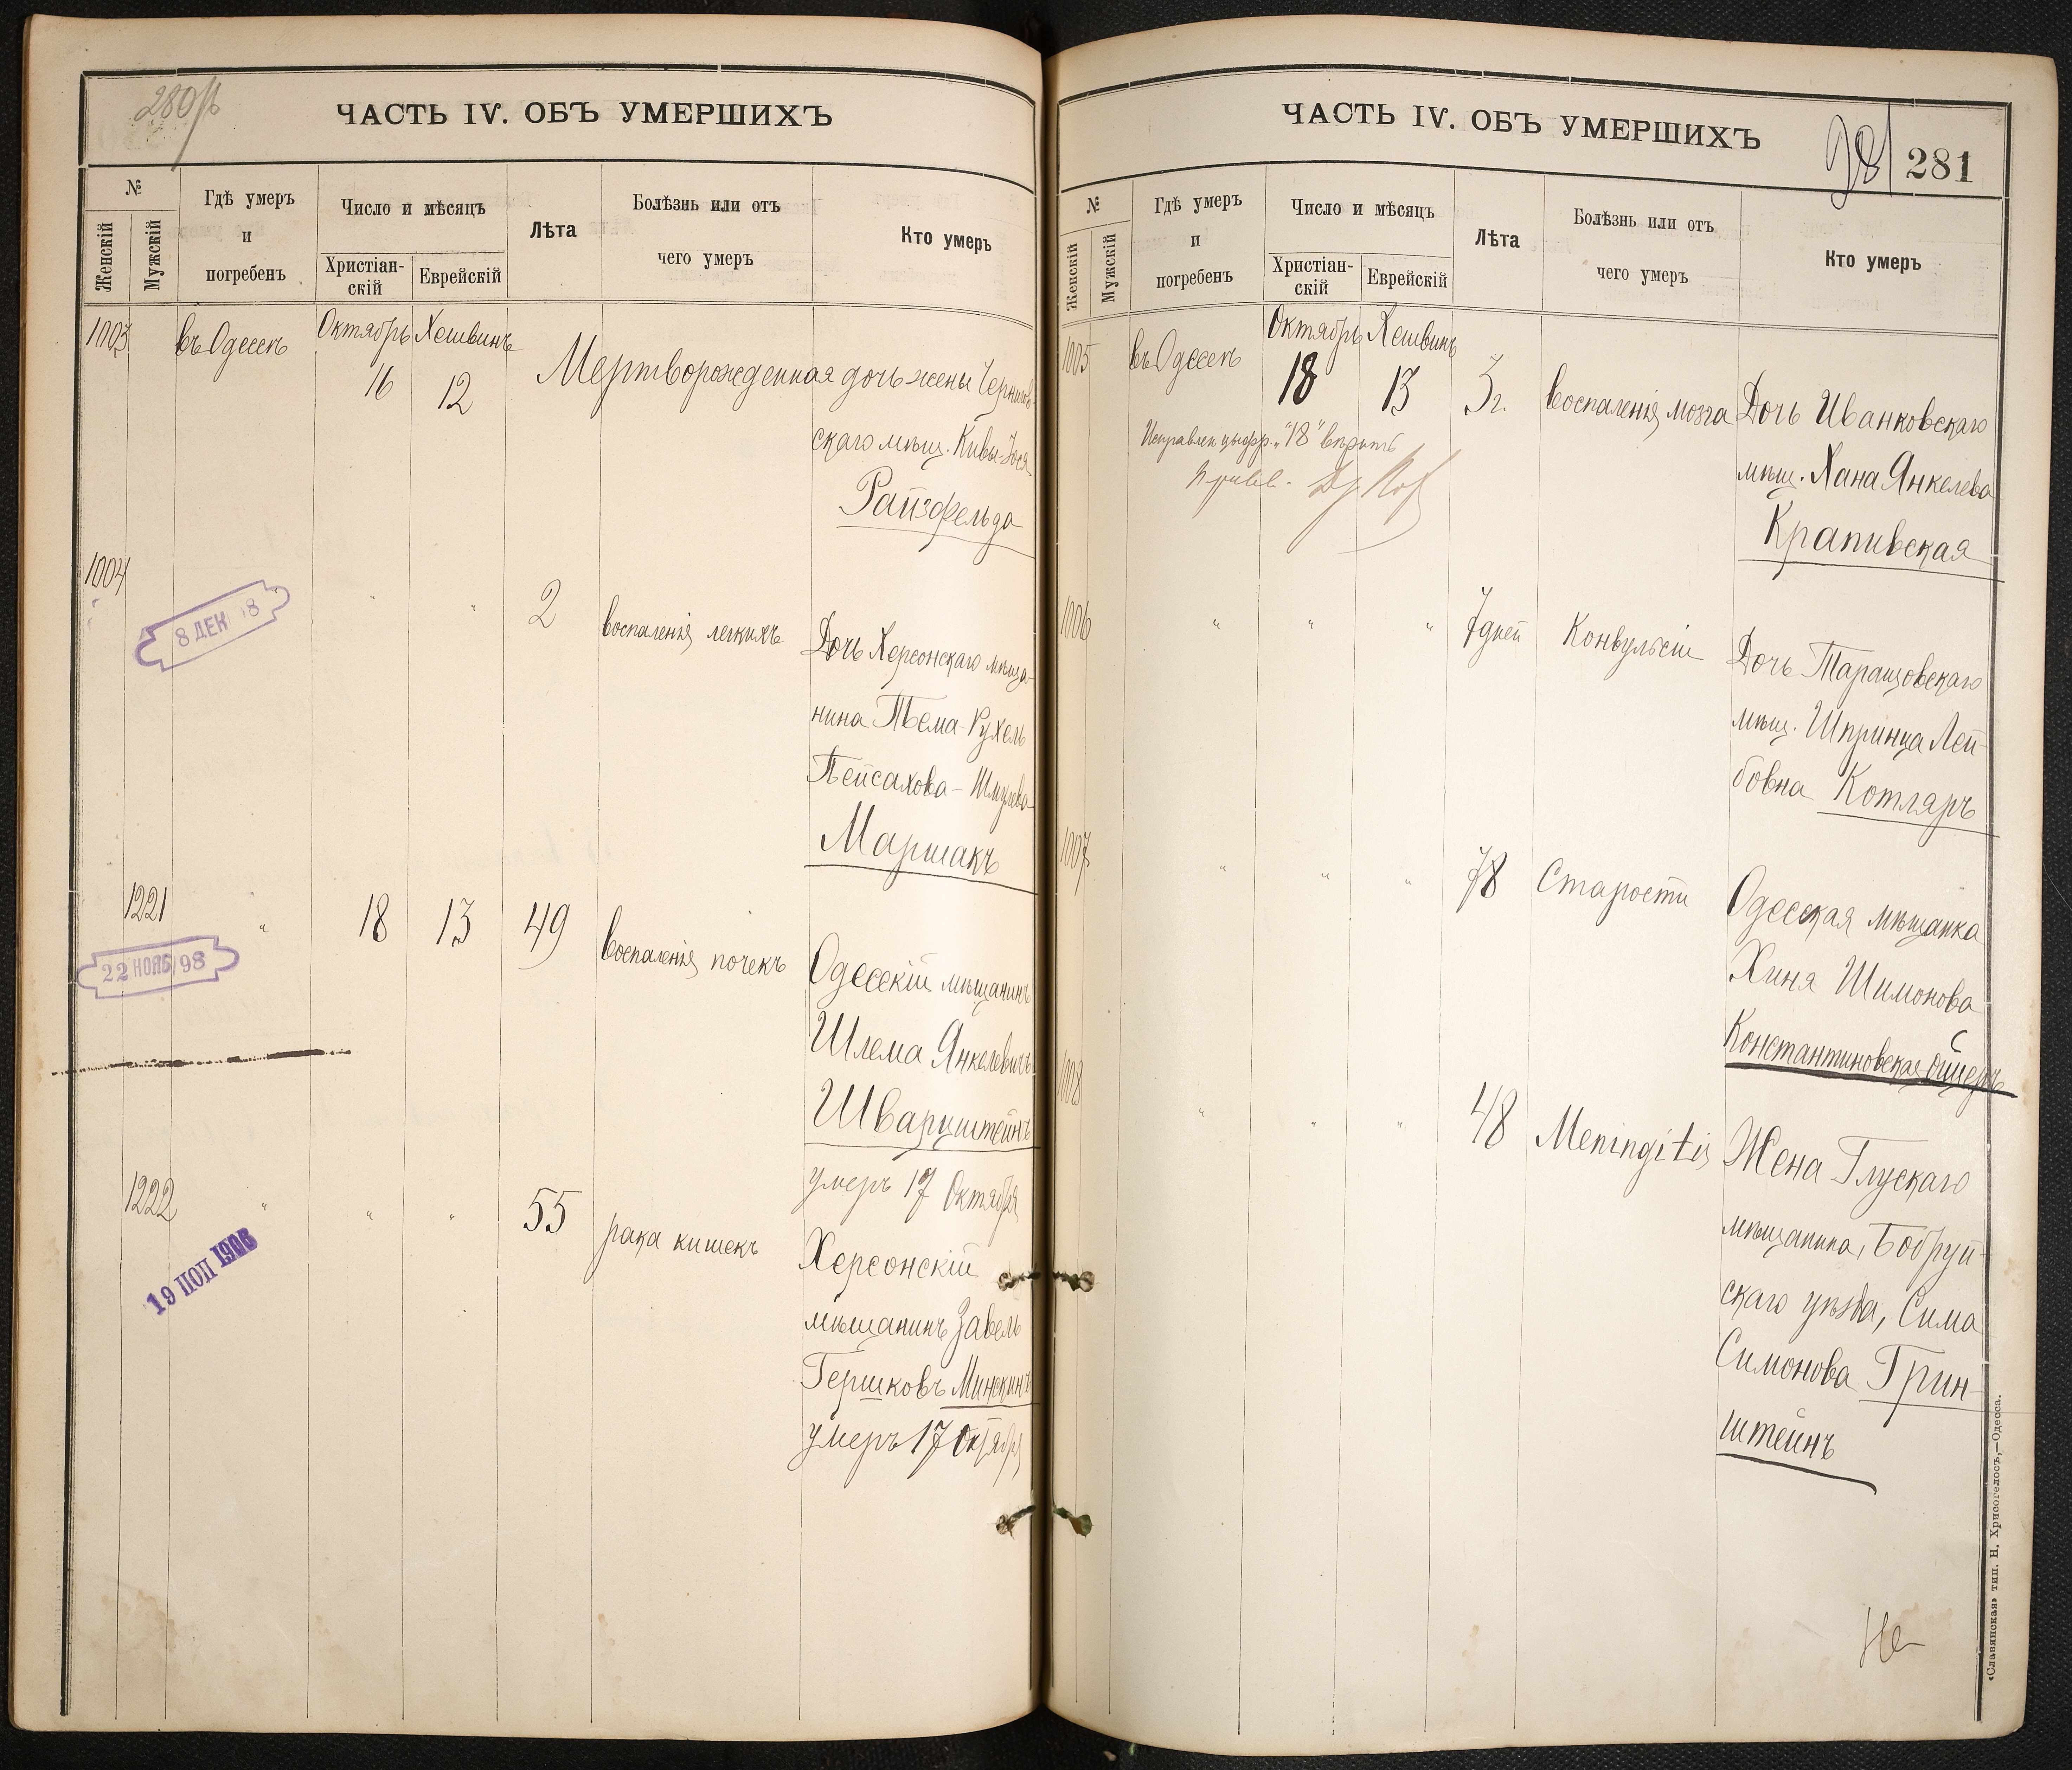 280
ЧАСТЬ IV. ОБЪ УМЕРШИХЪ
№
Женскій
Мужскій
Гдѣ умеръ
и
погребенъ
Число и мѣсяцъ
Христіан-
скій
Еврейскій
Лѣта
Болѣзнь или отъ
чего умеръ
Кто умеръ
1003
въ Одессѣ
Октябрь
16
Хешвинъ
12
Мертворожденная дочь жены Чернигов-
скаго мѣщ. Кивы-Іося
Райзфельда
1004
8 ДЕК
" "
2
воспаленія легкихъ
Дочь Херсонскаго мѣща-
нина Песма-Рухель
Пейсахова-Шмулева
Маршакъ
1221
22 НОЯБ 98
"
18
13
49
воспаленія почекъ
Одесскій мѣщанинъ
Шлема Янкелевичъ
Шварцштейнъ
умеръ 17 Октября
1222
19
" " "
55
рака кишекъ
Херсонскій
мѣщанинъ Завель
Гершковъ Минскинъ
умеръ 17 Октября
ЧАСТЬ IV. ОБЪ УМЕРШИХЪ
281
281
№
Женскій
Мужскій
Гдѣ умеръ
и
погребенъ
Число и мѣсяцъ
Христіан-
скій
Еврейскій
Лѣта
Болѣзнь или отъ
чего умеръ
Кто умеръ
1005
въ Одессѣ
Октябрь
18
Хешвинъ
13
3 г.
воспаленія мозга
Дочь Иванковскаго
мѣщ. Хана Янкелева
Крапивская
Исправлен цыфр. "18" вѣрить
1006
" " "
7 дней
Конвульсіи
Дочь Таращовскаго
мѣщ. Шпринца Лей-
бовна Котляръ
1007
" " "
78
Старости
Одесская мѣщанка
Хиня Шимонова
Константиновская
1008
" " "
48
Meningitis
Жена Глускаго
мѣщанина, Бобруй-
скаго уѣзда, Сима
Симонова Грин-
штейнъ
«Славянская» тип. Н. Хрисогелосъ,—Одесса.